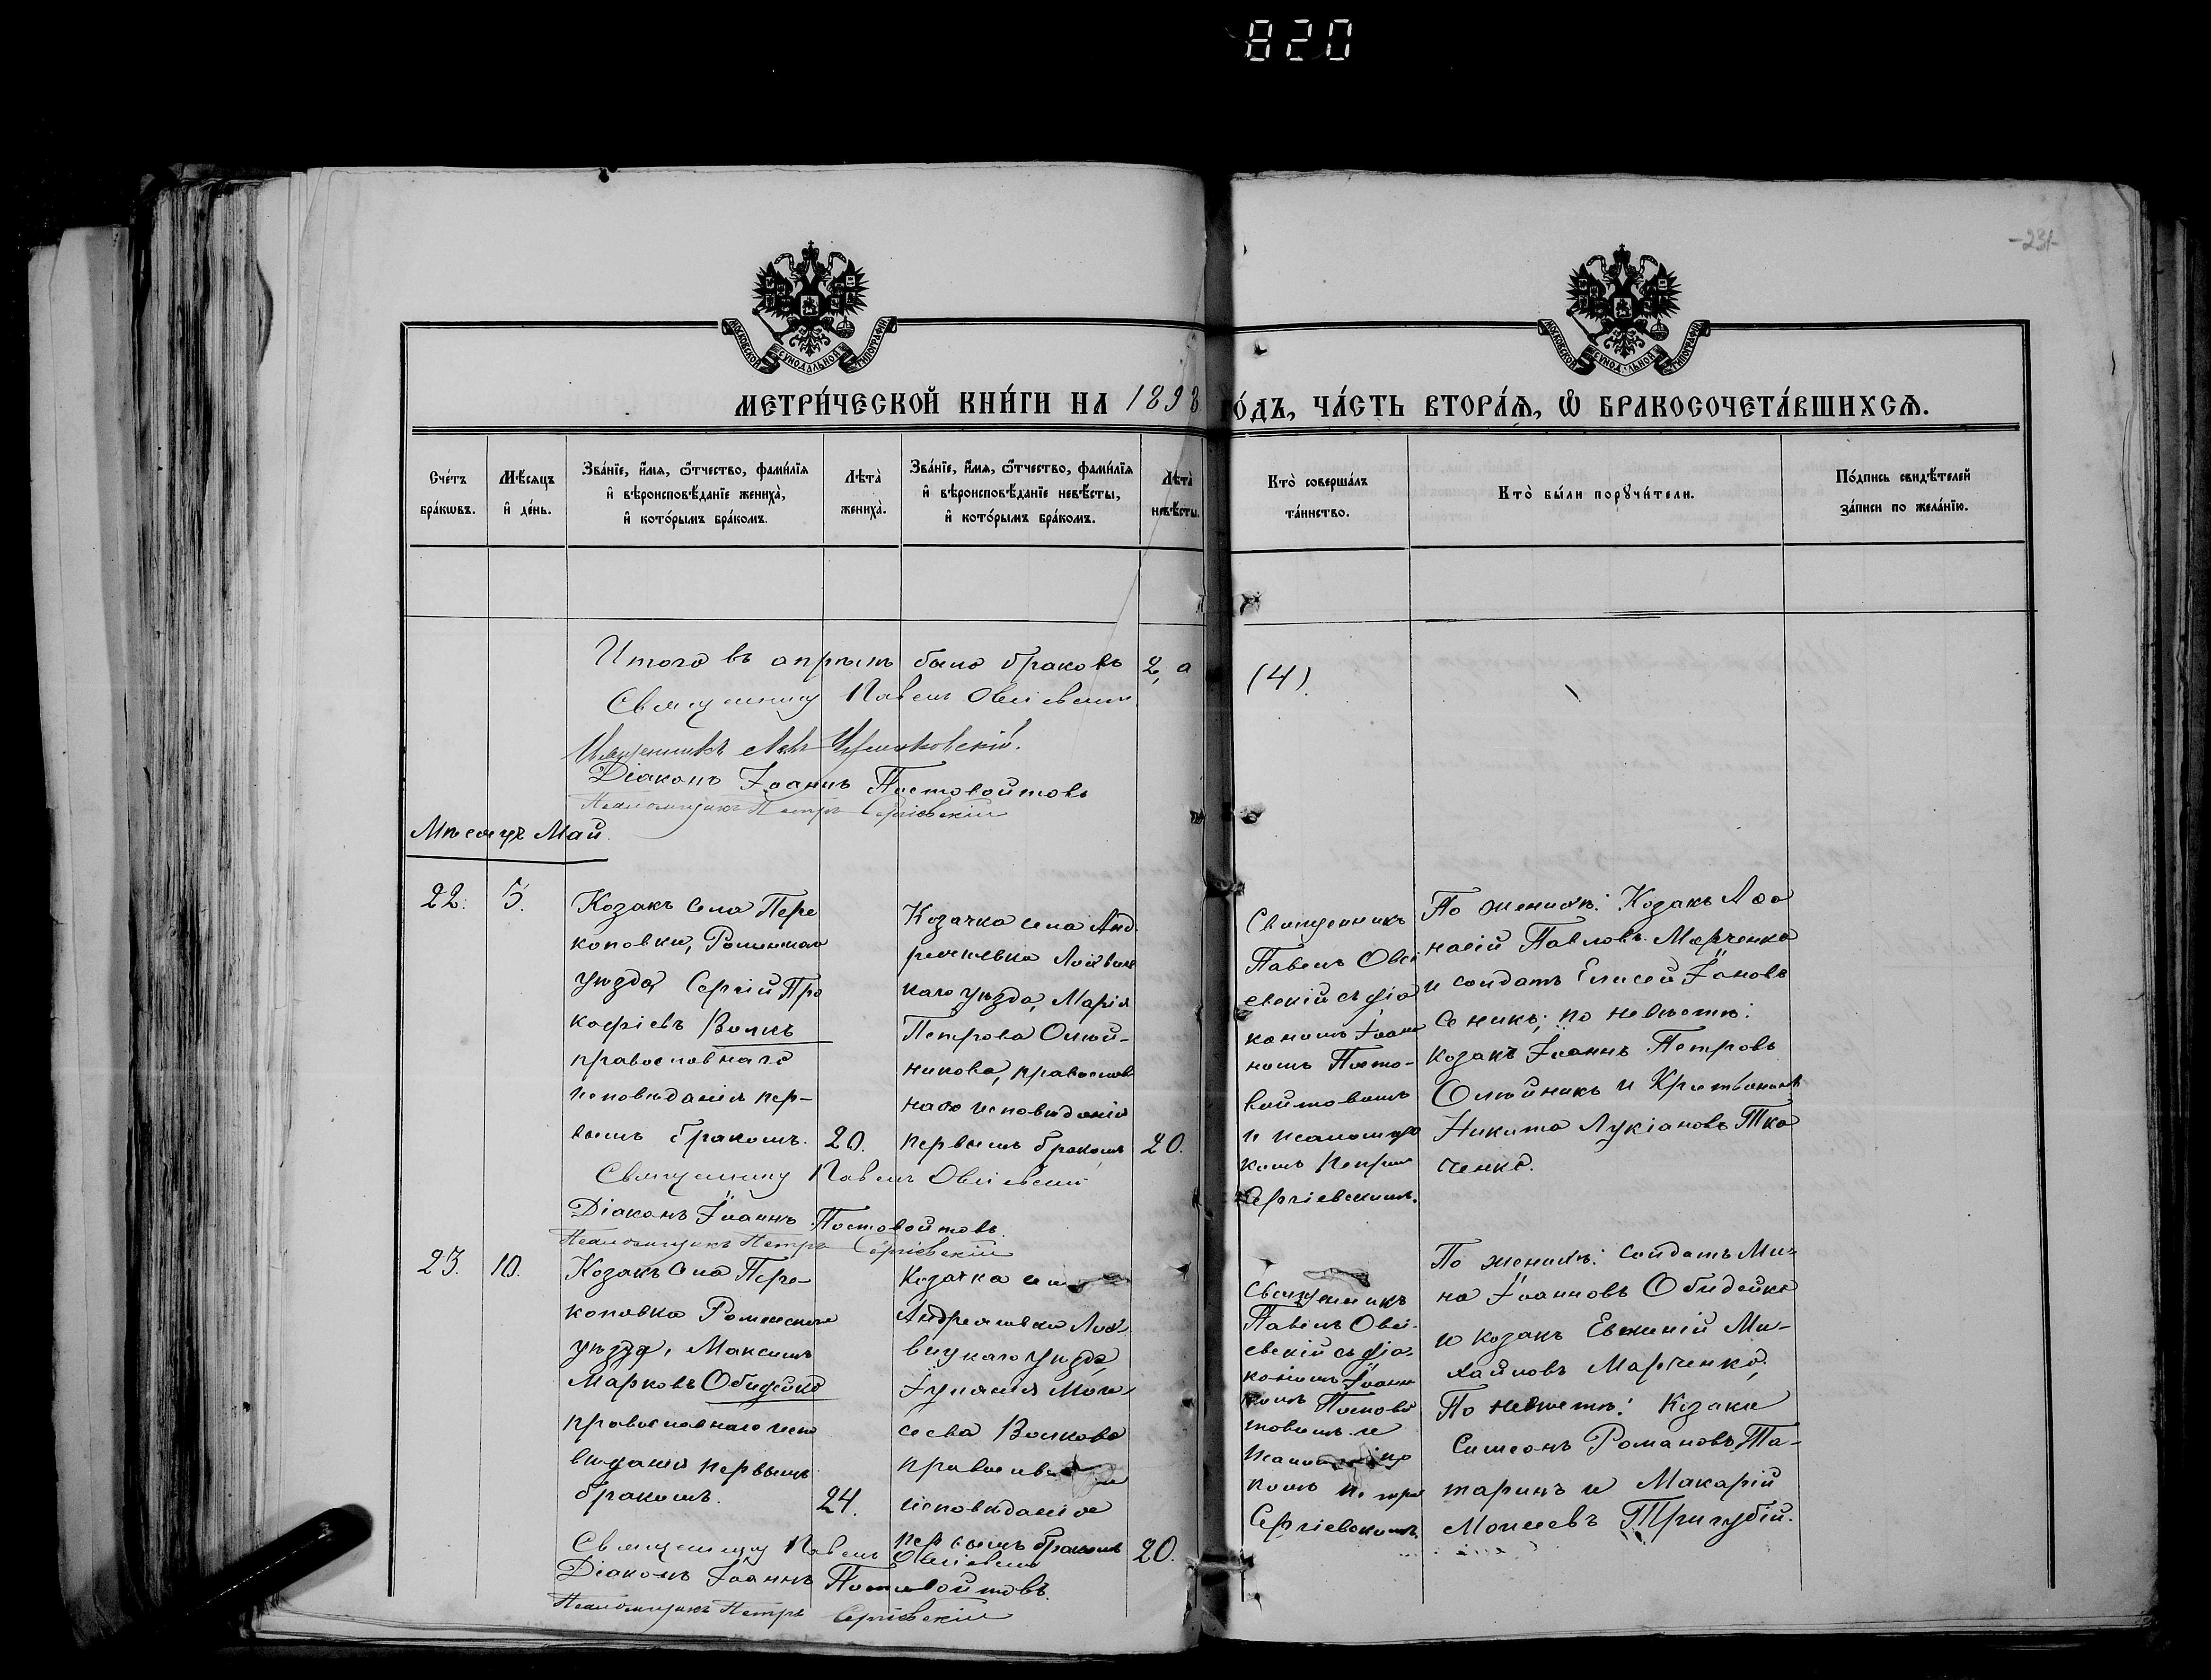 820
-231-
МОСКОВСКОЙ СѴНОДАЛЬНОЙ ТИПОГРАФІИ
МОСКОВСКОЙ СѴНОДАЛЬНОЙ ТИПОГРАФІИ
МЕТРИ́ЧЕСКОЙ КНИ́ГИ НА 1893 ГО́ДЪ, ЧА́СТЬ ВТОРА́Ѧ, Ѽ БРАКОСОЧЕТА́ВШИХСѦ.
Сче́тъ
бра́кѡвъ.
Мѣ́сяцъ
и҆ де́нь.
Зва́нїе, и҆́мя, ѻ҆́тчество, фами́лїя
и҆ вѣроисповѣ́данїе жениха̀,
и҆ кото́рымъ бра́комъ.
Лѣта̀
жениха̀.
Зва́нїе, и҆́мя, ѻ҆́тчество, фами́лїя
и҆ вѣроисповѣ́данїе невѣ́сты,
и҆ кото́рымъ бра́комъ.
Лѣта̀
невѣ́сты.
Кто̀ соверша́лъ
та́инство.
Кто̀ бы́ли порꙋчи́тели.
По́дпись свидѣ́телей
за́писи по жела́нїю.
Итого въ апрѣлѣ было браковъ 2, а (4).
Священникъ Павелъ Овсіевскій
Священникъ
Діаконъ Іоаннъ Постовойтовъ
Псаломщикъ Петръ Сергіевскій
Мѣсяцъ Май.
22.
5.
Козакъ села Пере
коповки, Роменскаго
уѣзда Сергій Про
кофіевъ Волкъ
православнаго
исповѣданія пер-
вымъ бракомъ.
20.
Козачка села Анд
реяшевки Лохвиц
каго уѣзда, Марія
Петрова Олѣй-
никова, православ
наго исповѣданія
первымъ бракомъ
20.
Священникъ
Павелъ Овсі
евскій съ діа
кономъ Іоан
номъ Посто-
войтовымъ
и псаломщи
комъ Петромъ
Сергіевскимъ.
По женихѣ: Козакъ Афа
насій Павловъ Марченко
и солдатъ Елисей Іоановъ
Сникъ; по невѣстѣ:
козакъ Іоаннъ Петровъ
Олѣйникъ и Крестьянинъ
Никита Лукіановъ Тка
ченко.
Священникъ Павелъ Овсіевскій
Діаконъ Іоаннъ Постовойтовъ.
Псаломщикъ Петръ Сергіевскій
23.
10.
Козакъ села Пере-
коповки Роменскаго
уѣзда, Максимъ
Марковъ Обидейко
православнаго испо
вѣданія первымъ
бракомъ.
24.
Козачка села
Андреяшевки Лох
вицкаго уѣзда
Іуліанія Мои
сеева Волкова
православна
исповѣданія
первымъ бракомъ
20.
Священникъ
Павелъ Овсі-
евскій съ діа-
кономъ Іоанн
номъ Постовой
товымъ и
псаломщи
комъ Петро
Сергіевскимъ.
По женихѣ: солдатъ Ми-
на Іоанновъ Обидейко
и козакъ Евѳимій Ми-
хайловъ Марченко,
По невѣстѣ: Козаки
Симеонъ Романовъ Та-
таринъ и Макарій
Моисеевъ Тригубій.
Священникъ Павелъ Овсіевскій
Діаконъ Іоаннъ Постовойтовъ.
Псаломщикъ Петръ Сергіевскій